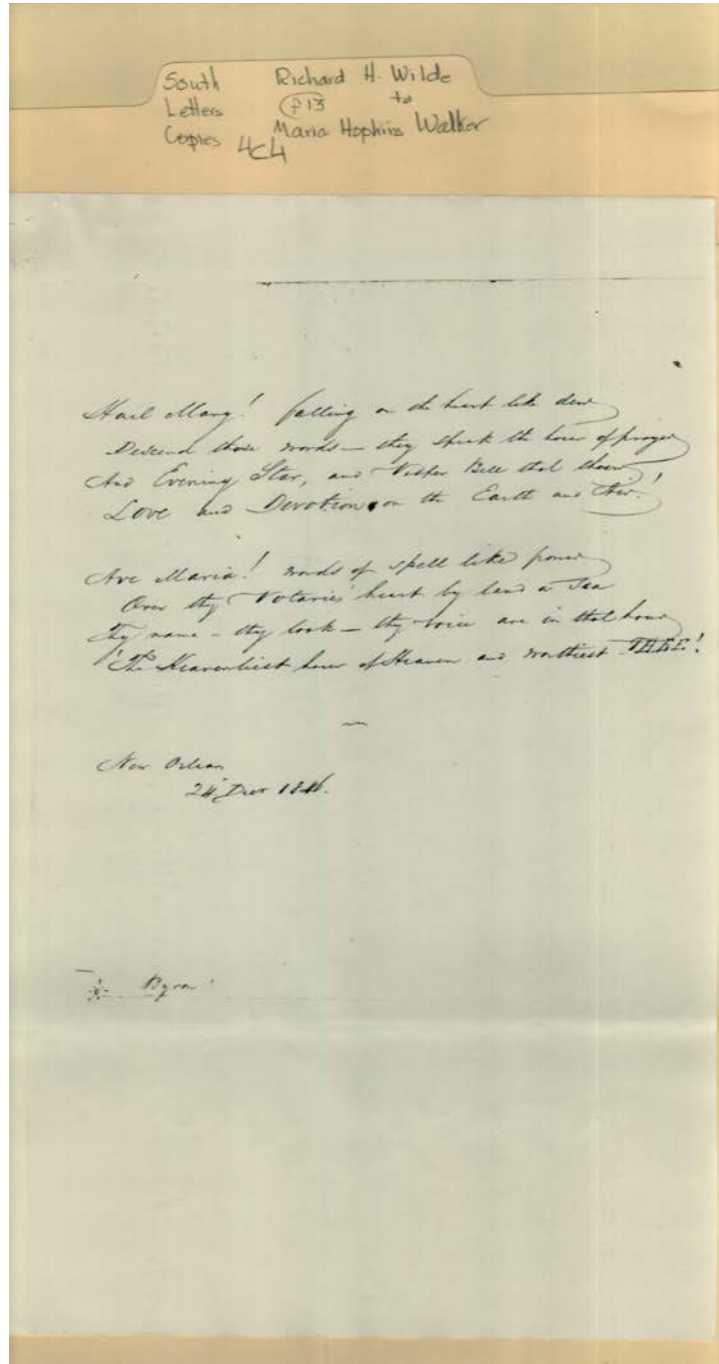 South Richard H. Wilde
Letters P13 to
Copies Maria Hopkins Walker
4C4
Hail Mary! falling on the heart like dew
Descend those words — they speak the hour of prayer
And Evening Star, and Vesper Bell that
Love and Devotion on the Earth and Air!
Ave Maria! words of spell like power
Over thy Votaries' heart by land or Sea
Thy name – thy look – thy voice are in that hour
The Heavenliest hour of Heaven and worthiest THEE!
New Orleans
24 Decr 1846.
Byron